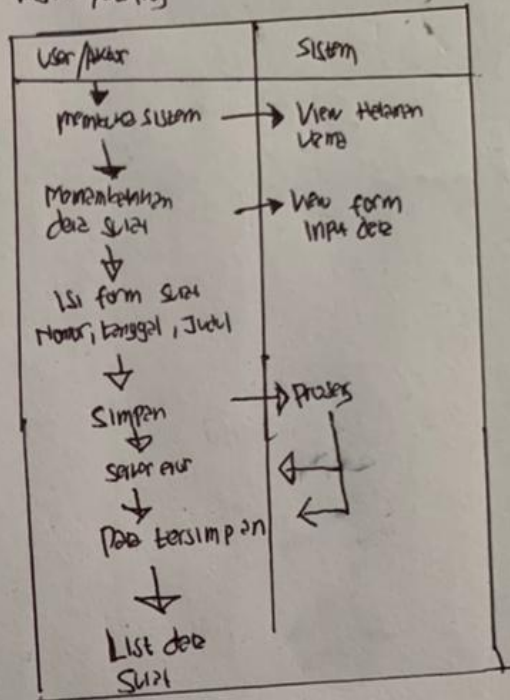 User/Aktor
Sistem
membuka sistem
View Halaman
utama
Menambahkan
data surat
View form
Input data
Isi form surat
Nomor, tanggal, Judul
Simpan
Proses
Server error
Data tersimpan
List data
Surat